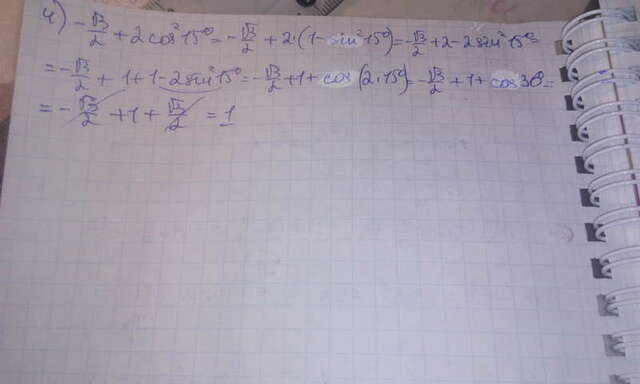 4) -√3/2 + 2cos²15° = -√3/2 + 2·(1-sin²15°) = -√3/2 + 2 - 2sin²15° =
= -√3/2 + 1 + 1 - 2sin²15° = -√3/2 + 1 + cos(2·15°) = -√3/2 + 1 + cos30° =
= -√3/2 + 1 + √3/2 = 1